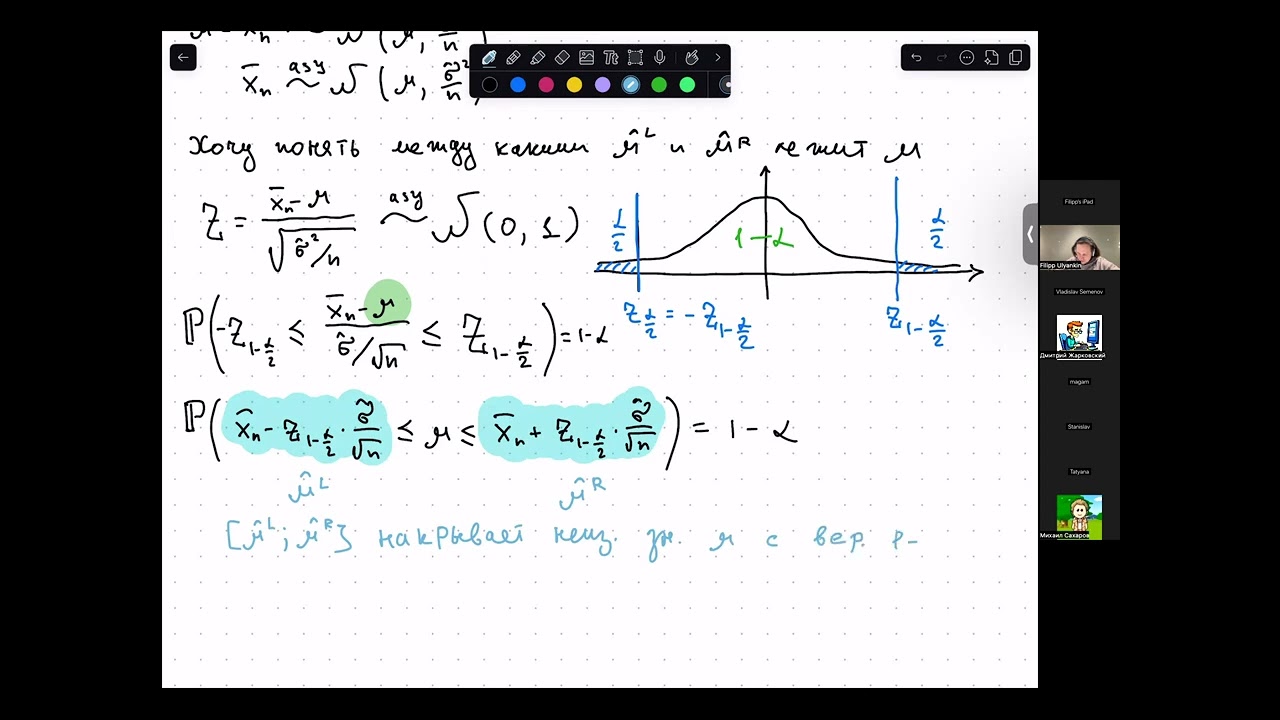 x̄ₙ ~ᵃˢʸ N(μ, σ̂²/n)
Хочу понять между какими μ̂ᴸ и μ̂ᴿ лежит μ
Z = (x̄ₙ − μ) / √(σ̂²/n) ~ᵃˢʸ N(0, 1)
α/2 1−α α/2
ℙ(−Z_{1−α/2} ≤ (x̄ₙ − μ) / (σ̂/√n) ≤ Z_{1−α/2}) = 1−α
Z_{α/2} = −Z_{1−α/2} Z_{1−α/2}
ℙ(x̄ₙ − Z_{1−α/2} · σ̂/√n ≤ μ ≤ x̄ₙ + Z_{1−α/2} · σ̂/√n) = 1 − α
μ̂ᴸ μ̂ᴿ
[μ̂ᴸ; μ̂ᴿ] накрывает неиз. зн. μ с вер. р-
Filipp's iPad
Filipp Ulyankin
Vladislav Semenov
Дмитрий Жарковский
magam
Stanislav
Tatyana
Михаил Сахаров